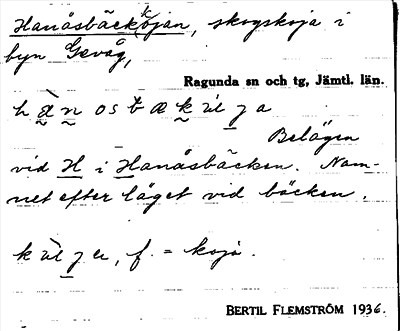 Hanåsbäckkojan, skogskoja i
byn Gevåg,
Ragunda sn og tg, Jämtl. län.
Belägen
vid H i Hanåsbäcken. Nam-
net efter läget vid bäcken.
f. = koja.
BERTIL FLEMSTRÖM 1936.